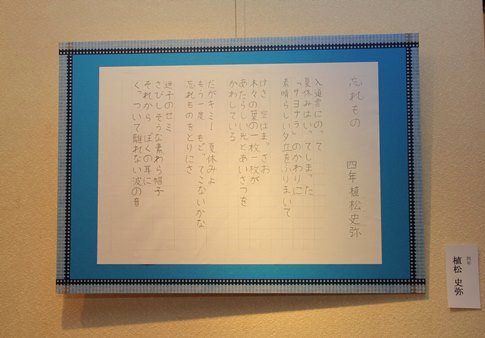 忘れもの
四年 植松史弥
入道雲にのって
夏休みはいってしまった
「サヨナラ」のかわりに
素晴らしい夕立をふりまいて
けさ 空はまっさお
木々の葉の一枚一枚が
あたらしい光とあいさつを
かわしている
だがキミ! 夏休みよ
もう一度 もどってこないかな
忘れものをとりにさ
迷子のセミ
さびしそうな麦わら帽子
それから ぼくの耳に
くっついて離れない波の音
四年
植松 史弥